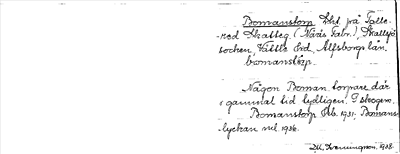 Bomanstorp lht på Talle-
red Skatteg. (Näås fabr.), Skallsjö
socken, Vättle hd, Älfsborgs län.
bomanstòrp.
Någon Boman torpare där
i gammal tid tydligen. I skogen.
Bomanstorp Jb. 1931. Bomans-
lyckan
1936.
1938.